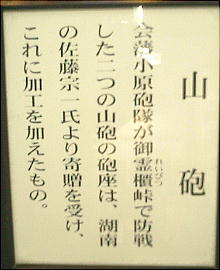 山砲
会藩小原砲隊が御霊櫃峠で防戦
れいびつ
した二つの山砲の砲座は、湖南
の佐藤宗一氏より寄贈を受け、
これに加工を加えたもの。